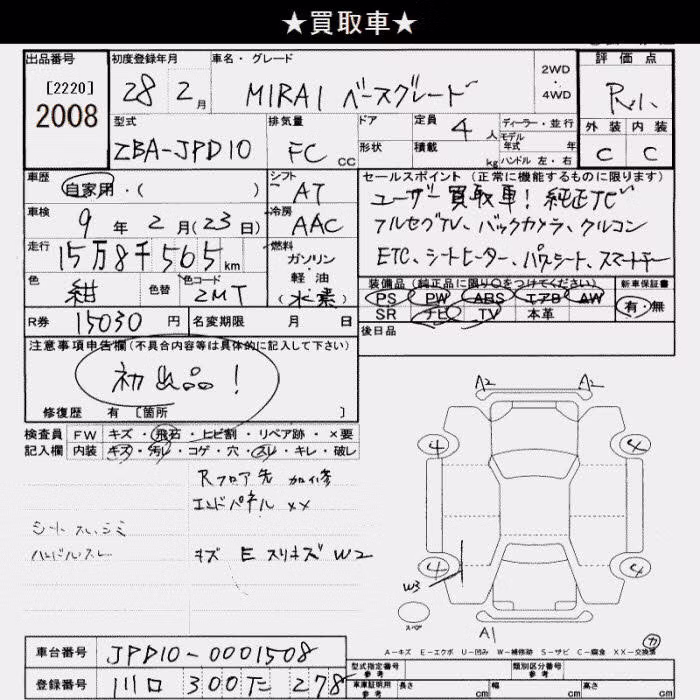 ★買取車★
出品番号 初度登録年月 車名・グレード 2WD・4WD 評価点
[2220]
2008
28 2月 MIRAI ベースグレード
外装 内装
C C
型式 排気量 ドア 定員 4人 ディーラー・並行
モデル年式 年
ZBA-JPD10 FC CC 形状 積載 kg ハンドル 左・右
車歴 自家用・( ) シフト AT
セールスポイント (正常に機能するものに限ります)
ユーザー買取車! 純正ナビ
フルセグTV、バックカメラ、クルコン
ETC、シートヒーター、パワーシート、スマートキー
車検 9年 2月(23日) 冷房 AAC
走行 15万8千565km 燃料 ガソリン・軽油 (水素)
色 紺 色替 色コード 2MT
装備品 (純正品に限り○をつけてください) 新車保証書
PS PW ABS エアB AW 有・無
SR ナビ TV 本革
R券 15030円 名変期限 月 日
後日品
注意事項申告欄(不具合内容等は具体的に記入して下さい)
初出品!
修復歴 有 [箇所 ]
検査員 FW キズ・飛石・ヒビ割・リペア跡・×要
記入欄 内装 キズ・汚レ・コゲ・穴・スレ・キレ・破レ
Rフロア先 加修
エンドパネル ××
シートスレ、シミ
ハンドルスレ
キズ E スリキズ W2
A2 A2
4 4
4 4
W3
スペア
A1
カ
A-キズ E-エクボ U-凹み W-補修跡 S-サビ C-腐食 XX-交換済
車台番号 JPD10-0001508
登録番号 川口 300 て 278
型式指定番号 参考 類別区分番号 参考
車庫証明用 参考 長さ cm 幅 cm 高さ cm